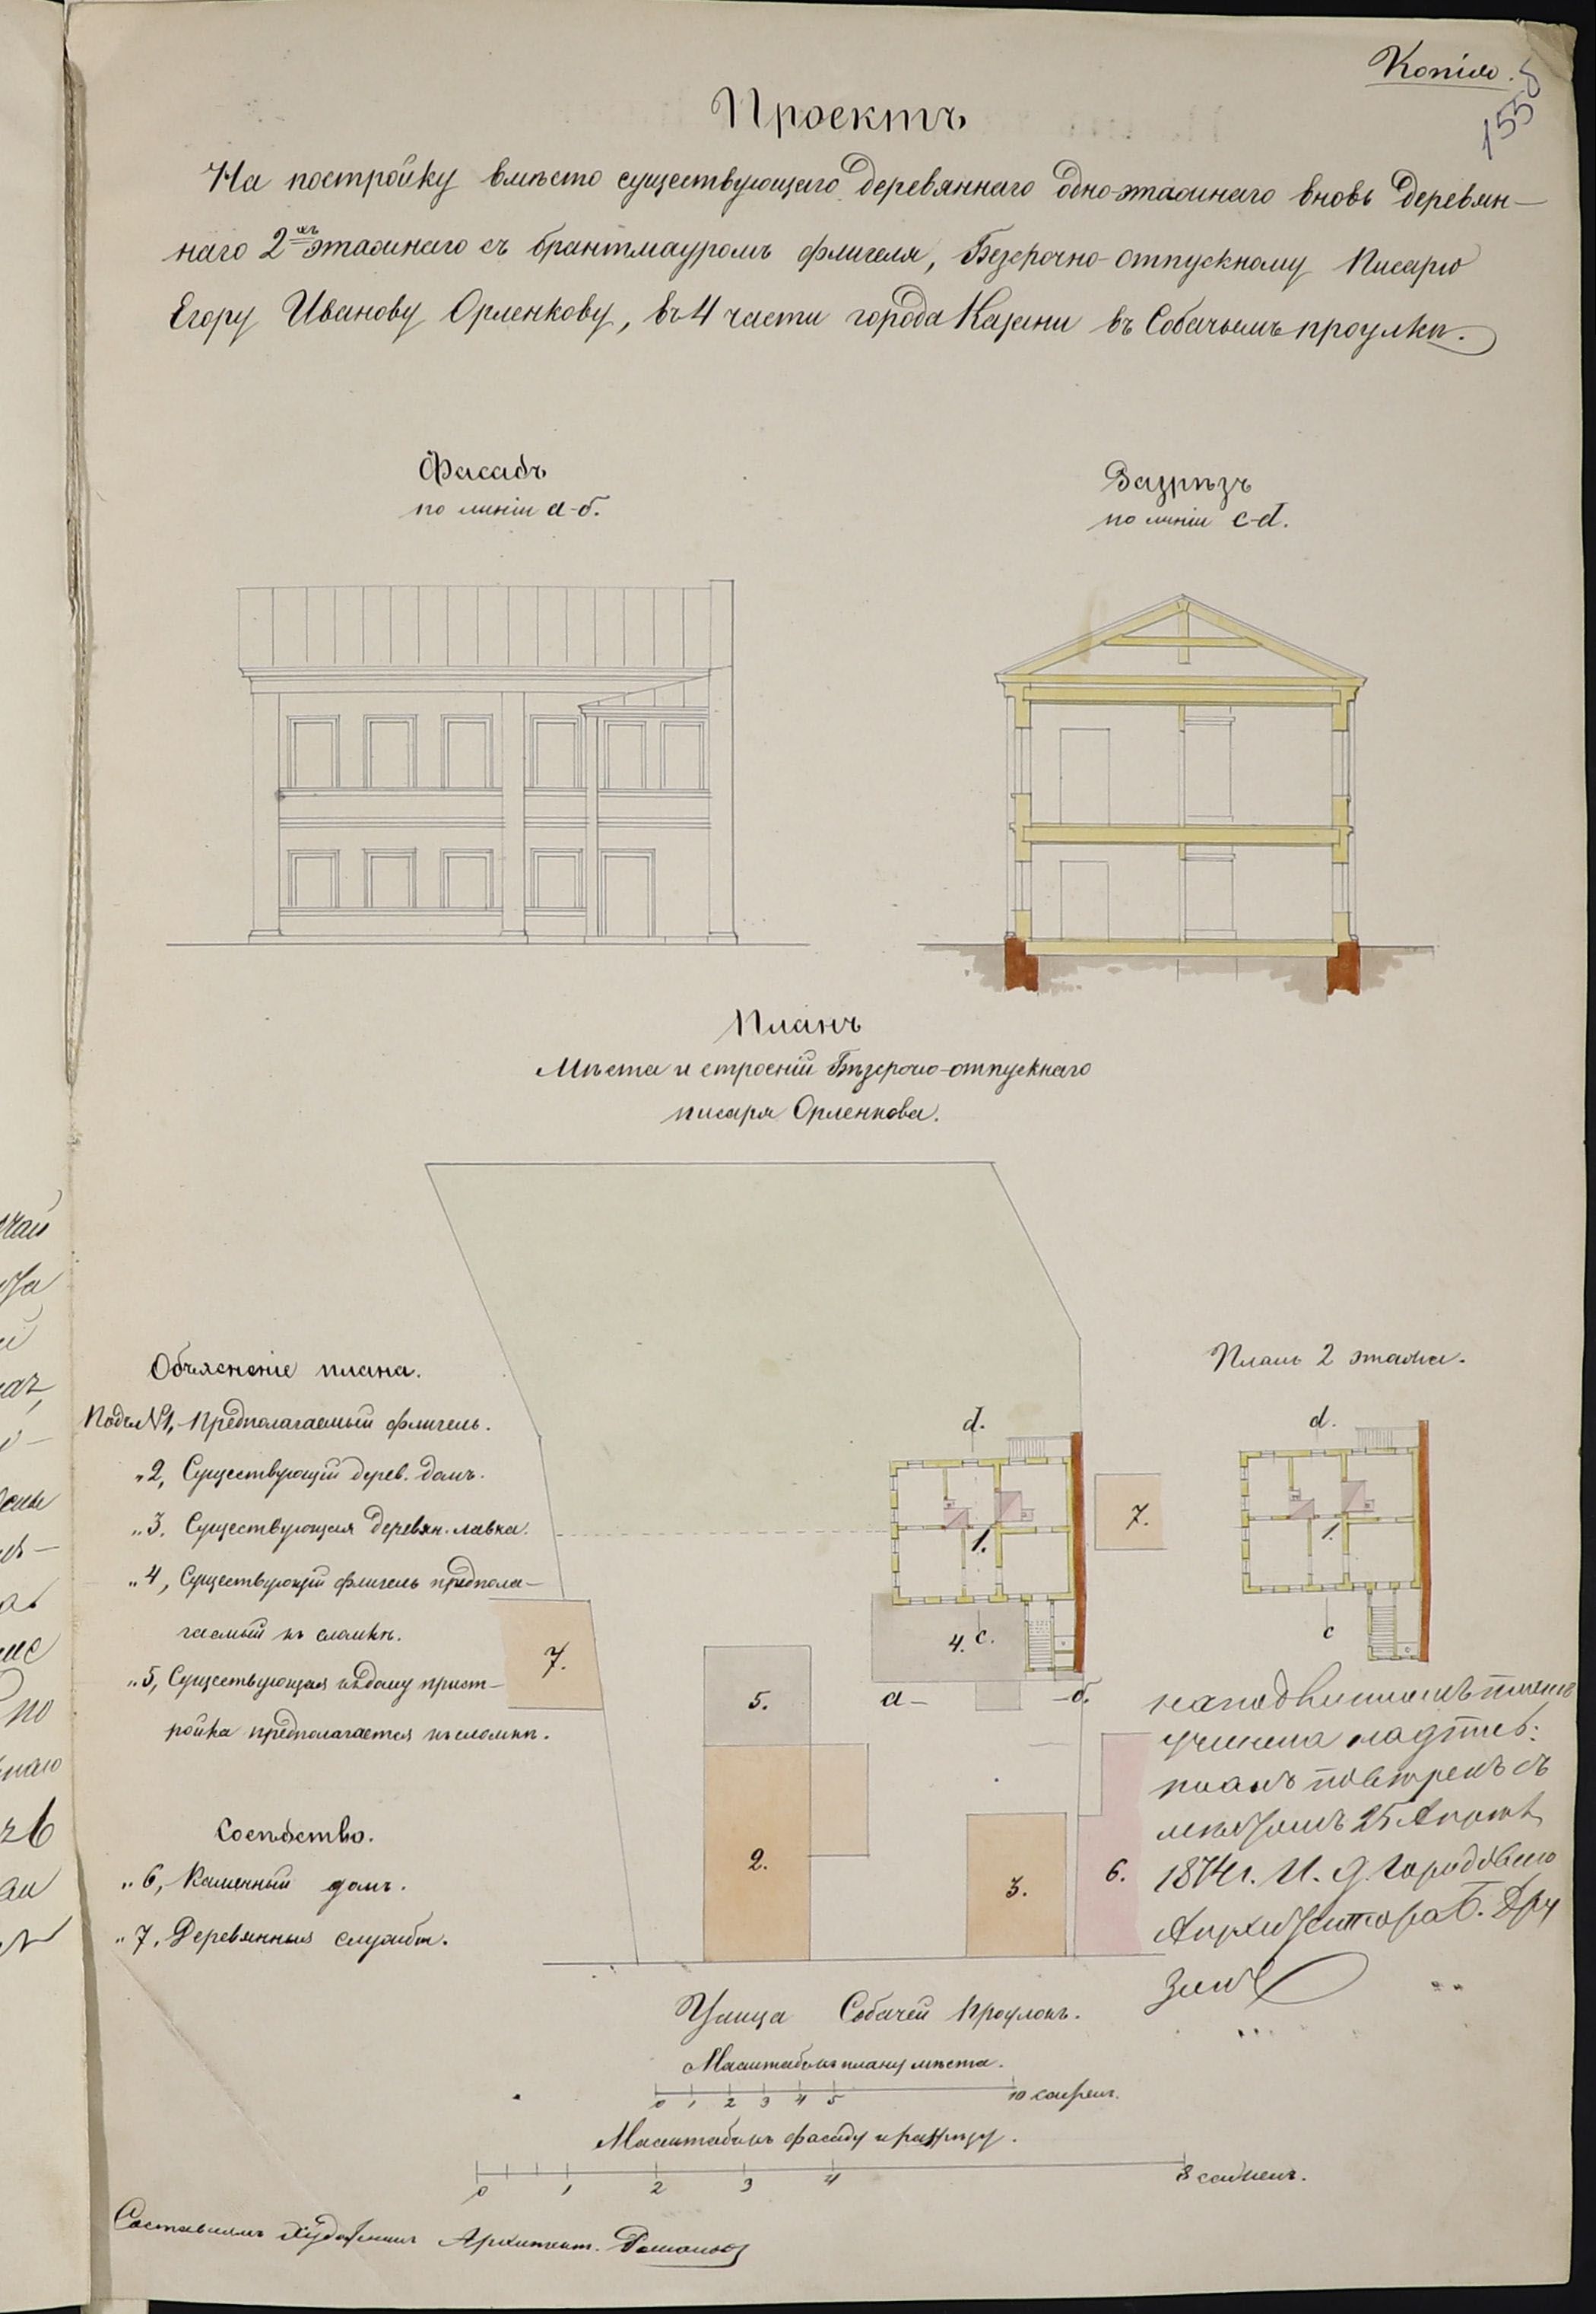 Копія.
155
Проектъ
На постройку вмѣсто существующаго деревяннаго одно-этажнаго вновь деревян-
наго 2хъ этажнаго съ брантмауромъ флигеля, Безсрочно-отпускному Писарю
Егору Иванову Орленкову, въ 4 части города Казани въ Собачьемъ проулкѣ.
Фасадъ
по линіи a-б.
Разрѣзъ
по линіи c-d.
Планъ
Мѣста и строеній Безсрочно-отпускнаго
писаря Орленкова.
Объясненіе плана.
Подъ №1, Предполагаемый флигель.
"2, Существующій дерев. домъ.
"3. Существующая деревян. лавка.
"4, Существующій флигель предпола-
гаемый къ сломкѣ.
"5, Существующая къ дому прист-
ройка предполагается къ сломкѣ.
Сосѣдство.
"6, Каменный домъ.
"7. Деревянныя службы.
План 2 этажа.
d.
1.
c
d.
1.
7.
4. c.
a-
-б.
7.
5.
2.
3.
6.
25 Апрѣля
1874 г. И. д. Городоваго
Архитектора
Улица Собачей Проулокъ.
Масштабъ къ плану мѣста.
0 1 2 3 4 5 10 сажен.
Масштабъ къ фасаду и разрѣзу.
0 1 2 3 4 8 сажен.
Составилъ Художникъ Архитект. Романовъ